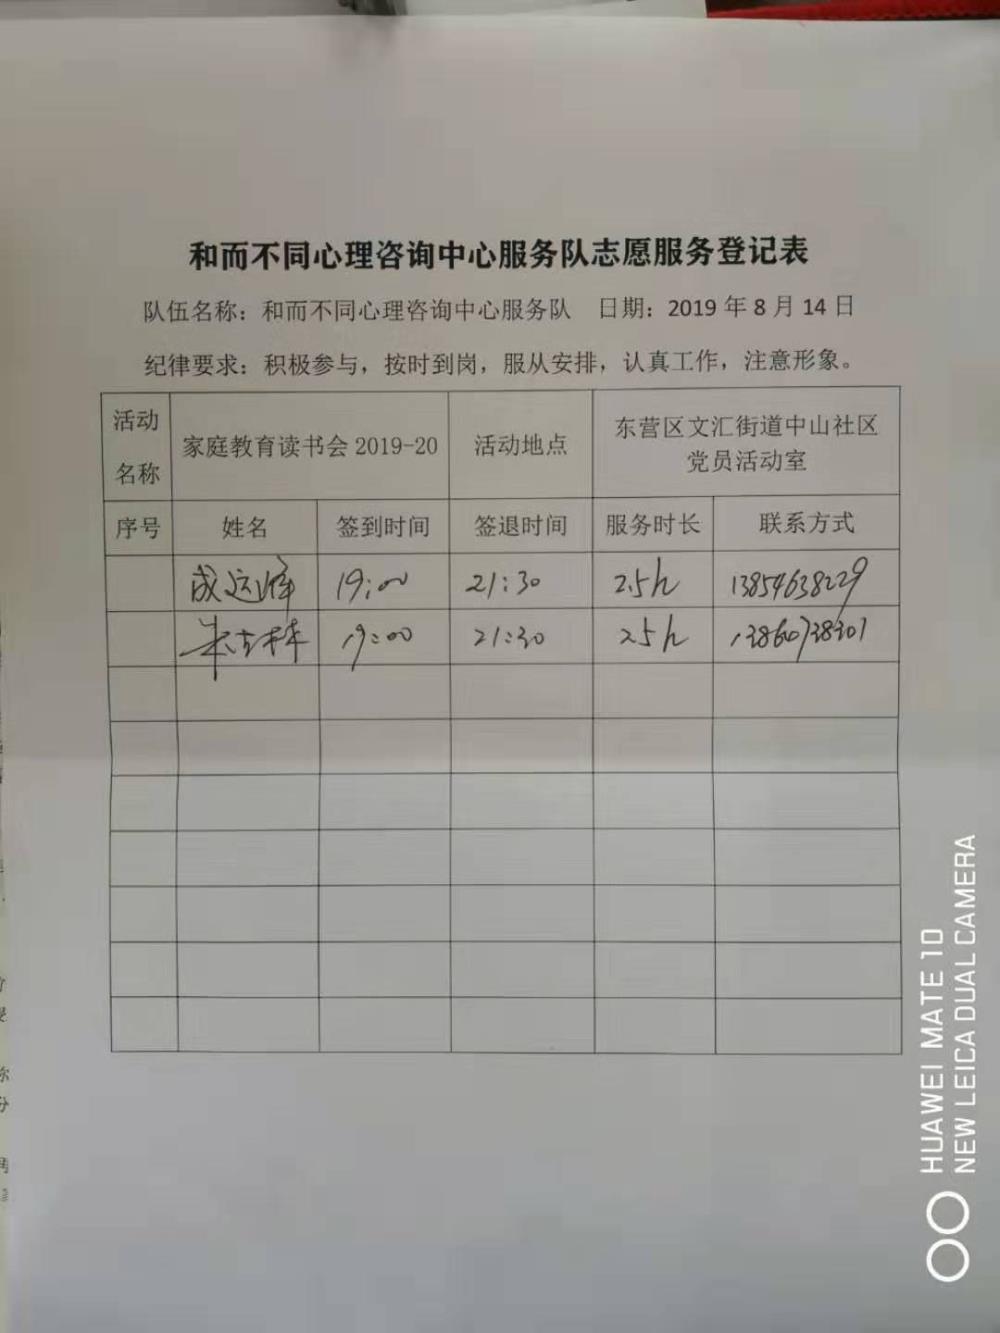 和而不同心理咨询中心服务队志愿服务登记表
队伍名称：和而不同心理咨询中心服务队 日期：2019 年 8 月 14 日
纪律要求：积极参与，按时到岗，服从安排，认真工作，注意形象。
活动名称 家庭教育读书会 2019-20 活动地点 东营区文汇街道中山社区党员活动室
序号 姓名 签到时间 签退时间 服务时长 联系方式
成运峰 19:00 21:30 2.5h 13854638229
朱 林 19:00 21:30 2.5h 13860738301
HUAWEI MATE 10
NEW LEICA DUAL CAMERA